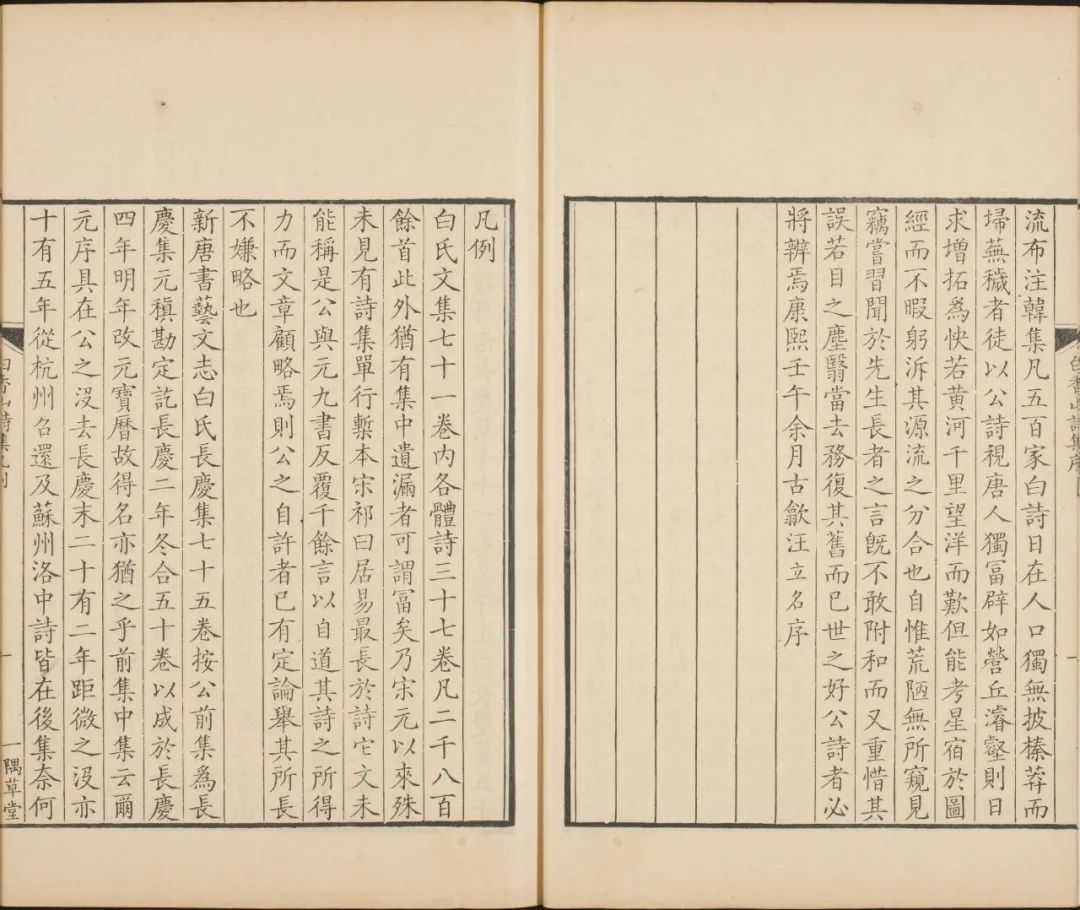 流布注韓集凡五百家白詩日在人口獨無披榛莽而
埽蕪穢者徒以公詩視唐人獨冨辟如營丘濬壑則日
求増拓爲快若黄河千里望洋而歎但能考星宿於圖
經而不暇躬泝其源流之分合也自惟荒陋無所窺見
竊嘗習聞於先生長者之言旣不敢附和而又重惜其
誤若目之塵翳當去務復其舊而已世之好公詩者必
將辨焉康熙壬午余月古歙汪立名序
凡例
白氏文集七十一卷内各體詩三十七卷凡二千八百
餘首此外猶有集中遺漏者可謂冨矣乃宋元以來殊
未見有詩集單行槧本宋祁曰居易最長於詩它文未
能稱是公與元九書反覆千餘言以自道其詩之所得
力而文章顧略焉則公之自許者已有定論舉其所長
不嫌略也
新唐書藝文志白氏長慶集七十五卷按公前集爲長
慶集元稹勘定訖長慶二年冬合五十卷以成於長慶
四年明年改元寶曆故得名亦猶之乎前集中集云爾
元序具在公之没去長慶末二十有二年距微之没亦
十有五年從杭州召還及蘇州洛中詩皆在後集奈何
白香山詩集凡例
一
一隅草堂